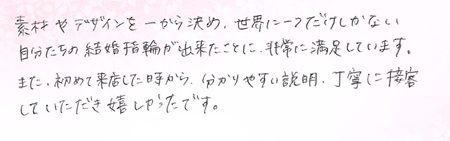 素材やデザインを一から決め、世界に一つだけしかない
自分たちの結婚指輪が出来たことに、非常に満足しています。
また、初めて来店した時から、分かりやすい説明、丁寧に接客
していただき嬉しかったです。